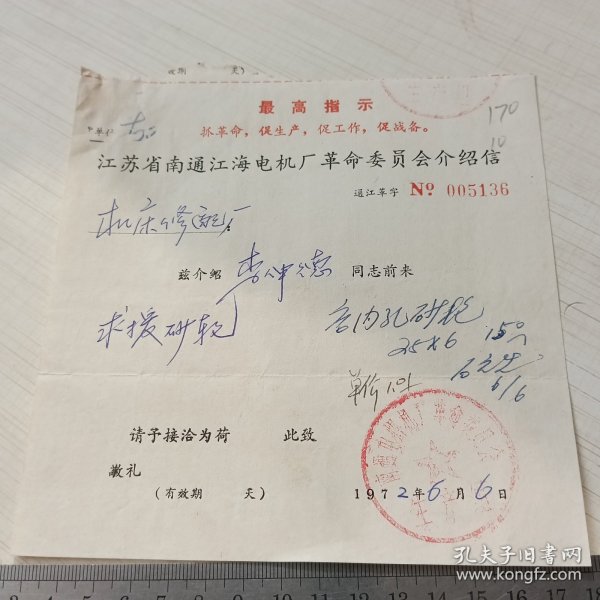 效期 天)
最高指示
抓革命，促生产，促工作，促战备。
170
10
江苏省南通江海电机厂革命委员会介绍信
通江革字 № 005136
机床修配厂:
兹介绍 李 德 同志前来
求援砂轮
内孔砂轮
25×6
单价
6/6
请予接洽为荷 此致
敬礼
(有效期 天)
1972年6月6日
孔夫子旧书网
www.kongfz.com